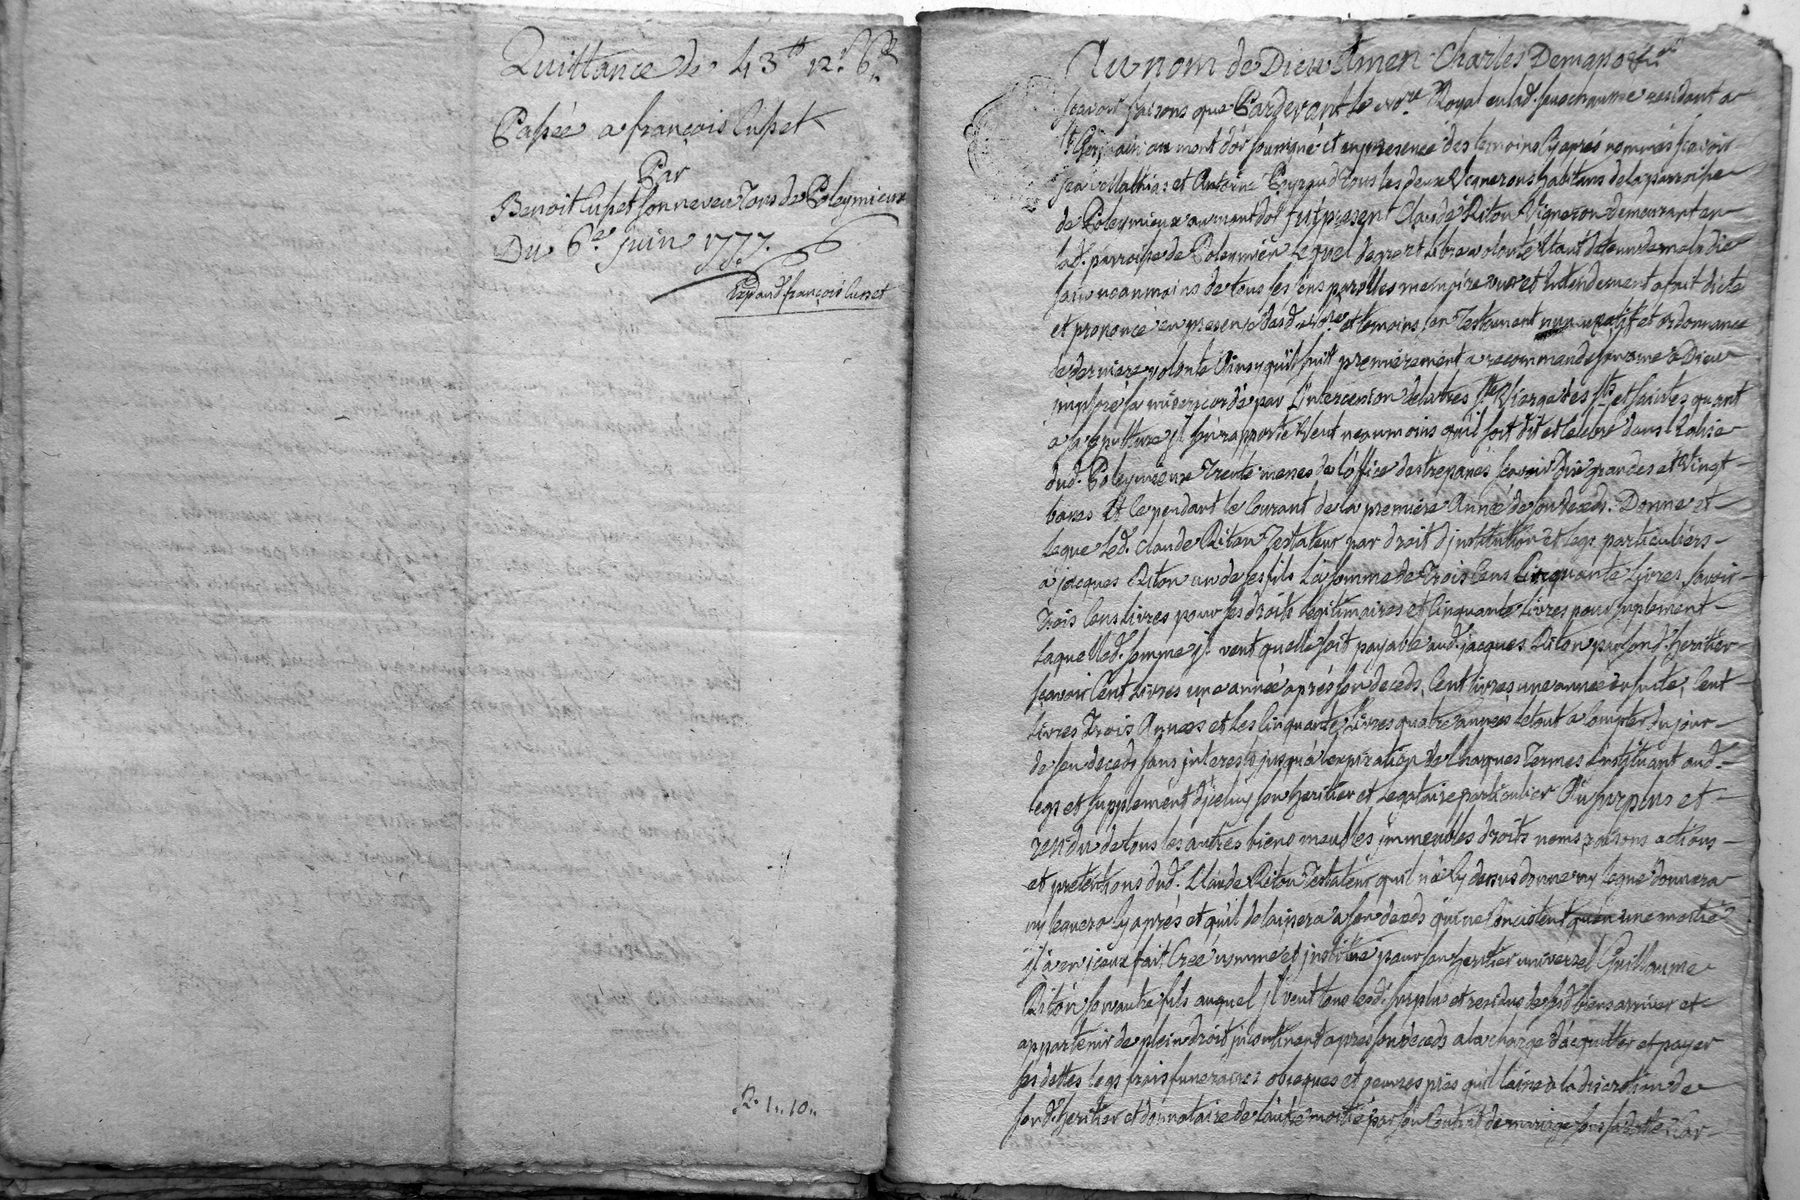 Quittance de 43 tt 12 s 6 d
Passée a françois Cuset
Par
Benoit Cuset son neveu Tons de Poleymieux
Du 6e juin 1777.
Expaud. françois Cuset
R. 1.. 10..
Au nom de Dieu Amen Charles Demapas
scavoir faisons que Pardevant le nore Royal en lad. senechaussée residant a
st Germain au mont d'or soussigné et en presence des temoins cy après nommés scavoir
jean Mathias et Antoine Peyraud tous les deux Vignerons habitans de la parroisse
de Poleymieux au mont d'or fut present Claude Riton Vigneron demeurant en
lad. parroisse de Poleymieu Lequel de gré et libre volonté Etant detenu de maladie
sain neanmoins de tous ses sens parolles memoire vue et Entendement a fait dicté
et prononcé en presence desd. nore et temoins son Testament nuncupatif et ordonnance
de derniere volonté Ainsy qu'il suit premièrement a recommandé son ame a Dieu
imploré sa misericorde par L'intercession de la tres Ste Vierge des Sts et saintes quant
a sa sepulture il s'en rapporte Veut neanmoins qu'il soit dit et celebré dans l'Eglise
dud. Poleymieux Trente messes de l'office des trepassés scavoir Dix grandes et Vingt
basses Et ce pendant le Courant de la premiere Année de son deceds. Donne et
legue Led. Claude Riton Testateur par droit d'institution et legs particuliers
a jacques Riton un de ses fils La somme de Trois Cens Cinquante Livres scavoir
Trois Cens Livres pour ses droits legitimaires et Cinquante Livres pour suplement
Laquelled. somme il veut quelle soit payable aud. jacques Riton par sond. heritier
scavoir Cent Livres une année après son deceds, Cent livres une année ensuite, Cent
Livres Trois Années et les Cinquante Livres quatre années le tout a Compter du jour
de son deceds sans interests jusqu'a l'expiration de Chaques Termes L'instituant aud.
legs et supplement d'jceluy son heritier et Legataire particulier Au surplus et
residu de tous les autres biens meubles immeubles droits noms raisons actions
et pretentions dud. Claude Riton Testateur qu'il n'a Cy dessus donné ny legué donnera
ny leguera Cy après et qu'il delaissera a son deceds qui ne Consistent qu'en une moitié
il a en iceux fait Créé nommé et institué pour son heritier universel Guillaume
Riton son autre fils auquel il veut tous lesd. surplus et residus de sesd. biens arriver et
appartenir de plein droit incontinent apres son deceds a la charge d'acquitter et payer
ses dettes legs frais funeraires obseques et oeuvres pies qu'il laisse a la discretion de
sond. heritier et donnataire de l'autre moitié par son Contrat de mariage